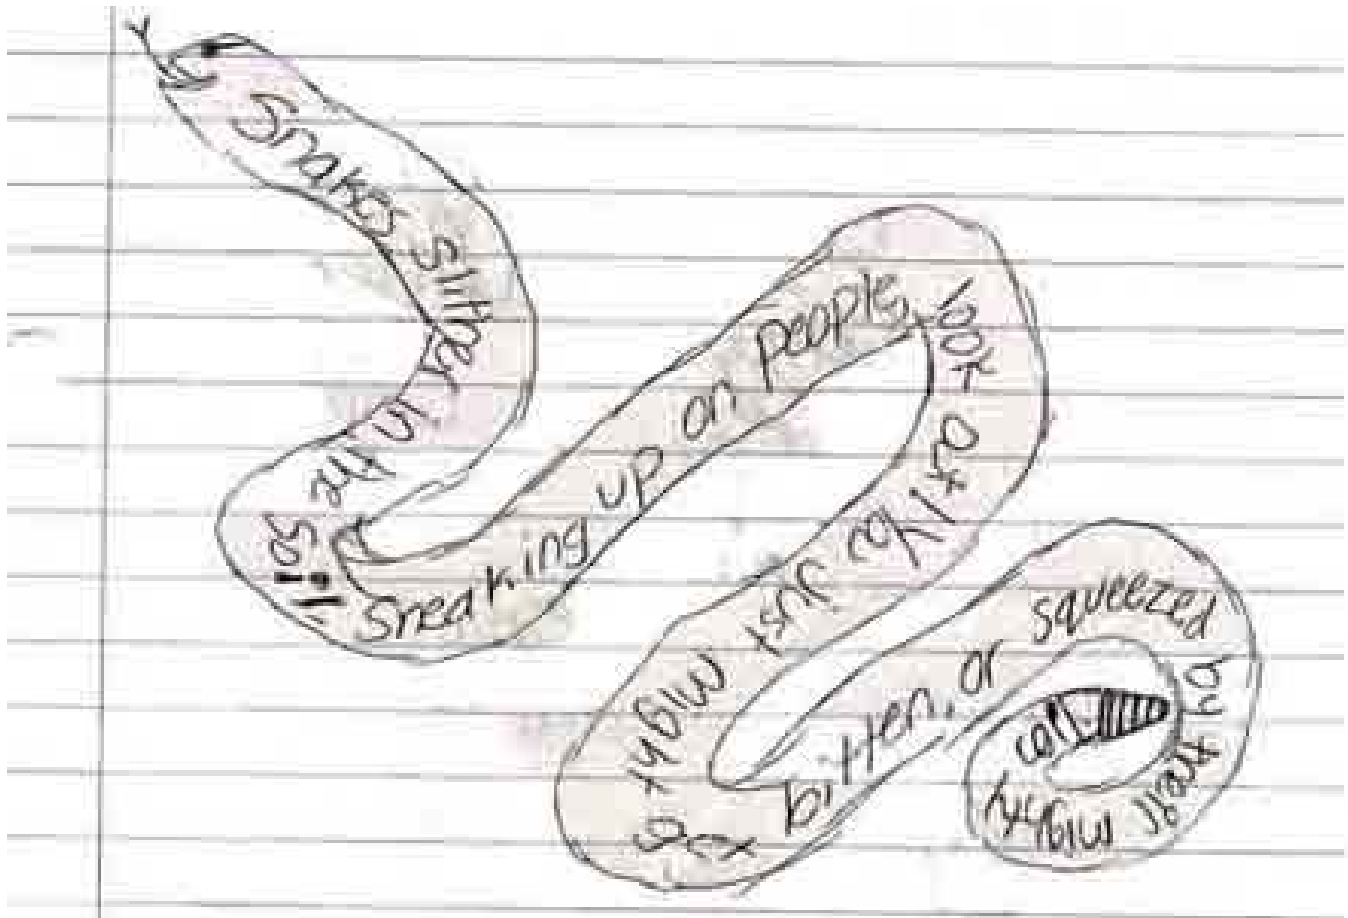 Snakes slither in the soil
Sneaking up on people,
look
You just might get
bitten, or squeezed
by their mighty
coil.